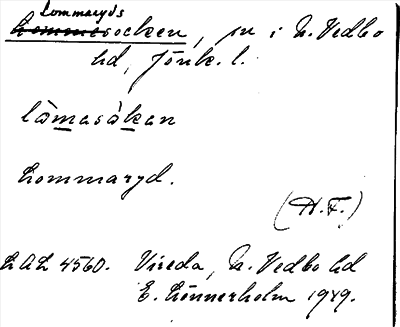 Lommaryds
Lommesocken, sn i N. Vedbo
hd, Jönk. l.
låmasåkan
Lommaryd.
(H.F.)
LAL 4560. Vireda, N. Vedbo hd
E. Lönnerholm 1949.